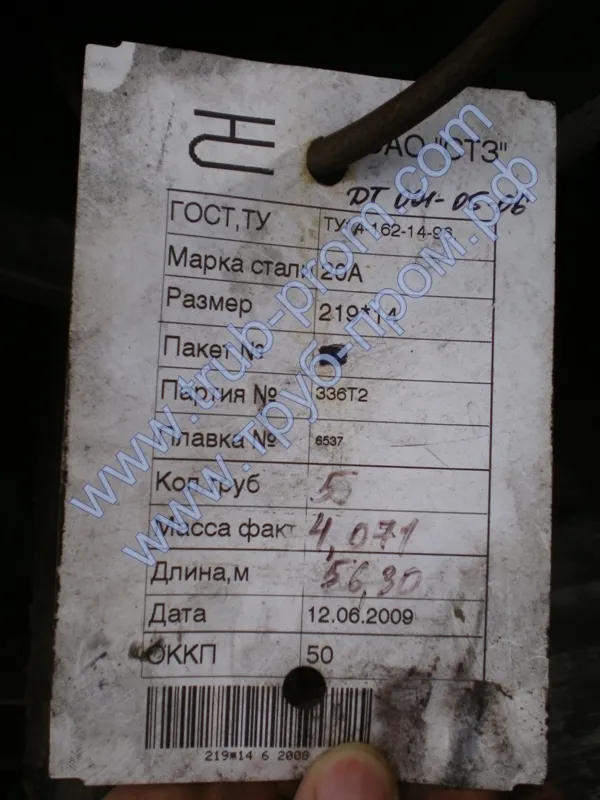 "СТЗ"
ДТ
ГОСТ,ТУ
Марка стали 20А
Размер 219*14
Пакет №
Партия № 336Т2
Плавка № 6537
Кол труб 5
Масса факт 4,071
Длина,м 56,30
Дата 12.06.2009
ОККП 50
219*14 6 2009
www.trub-prom.com
www.труб-пром.рф